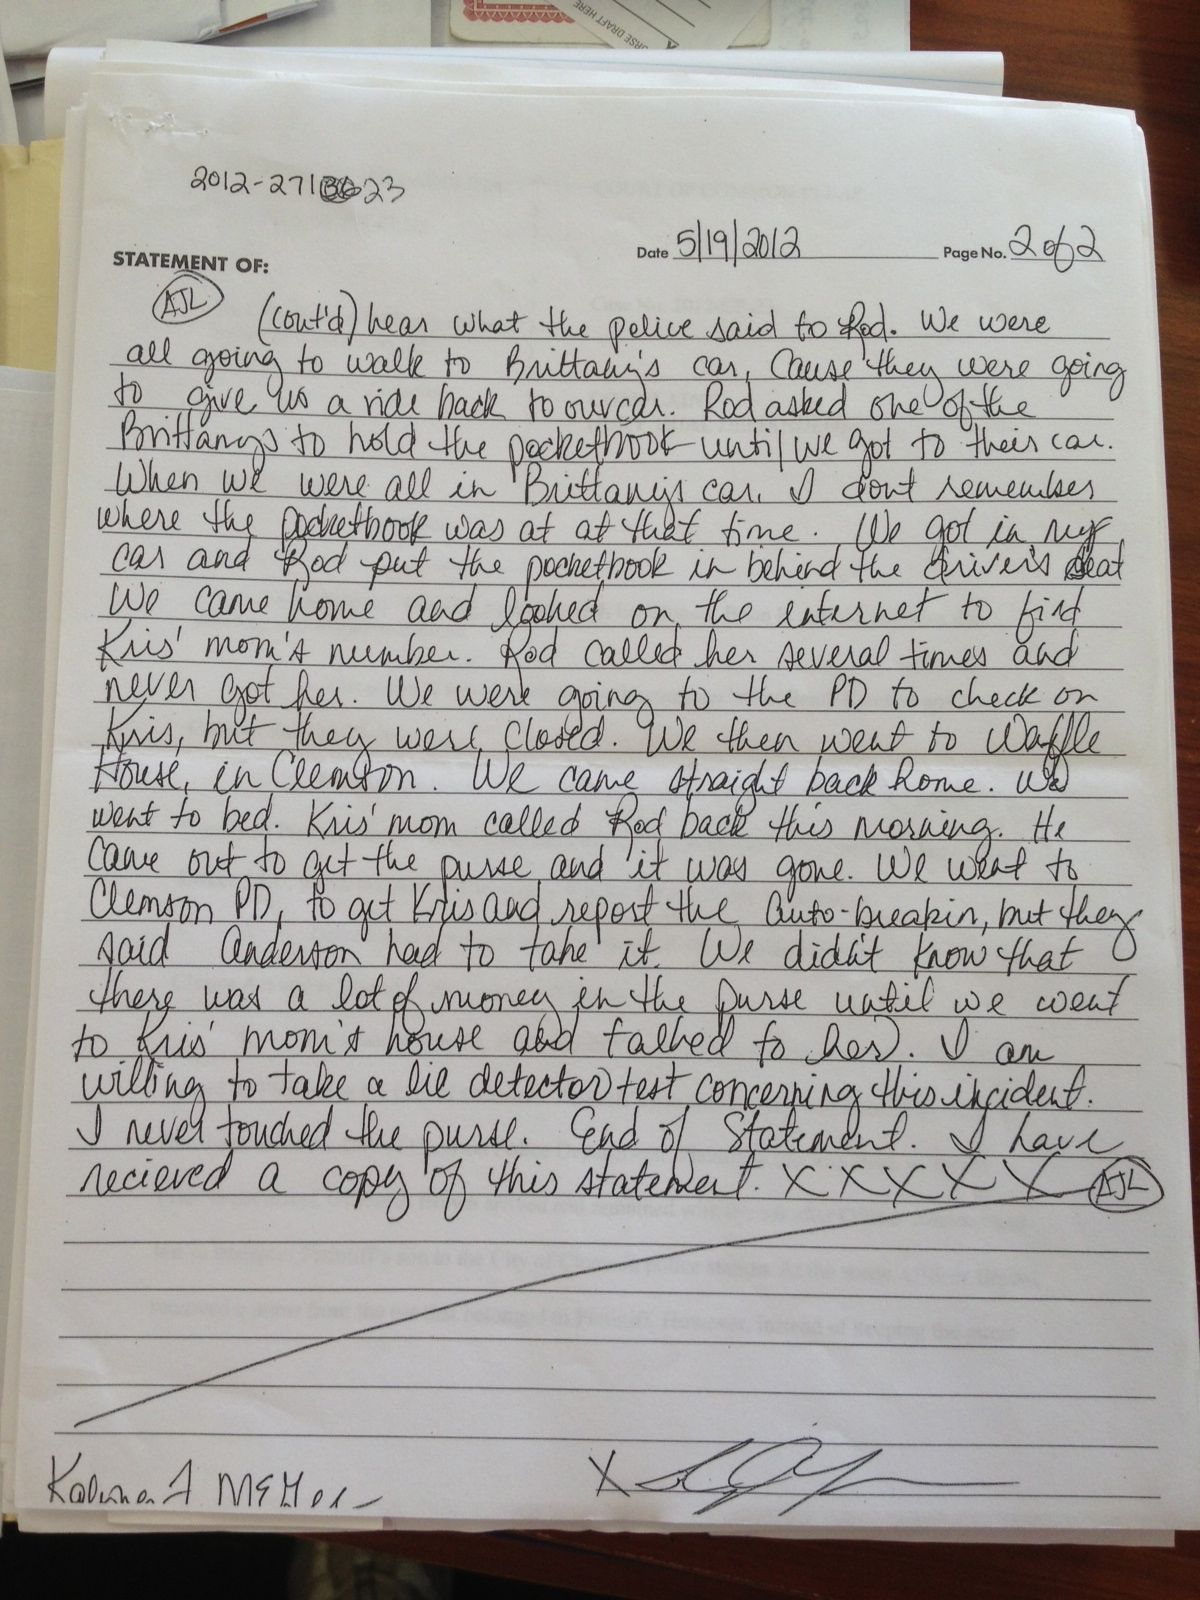 URSE DRAFT HERE
2012-271 23
STATEMENT OF:
Date 5/19/2012
Page No. 2 of 2
AJL
(cont'd) hear what the police said to Rod. We were
all going to walk to Brittany's car, Cause they were going
to give us a ride back to our car. Rod asked one of the
Brittanys to hold the pocketbook until we got to their car.
When we were all in Brittany's car, I dont remember
where the pocketbook was at at that time. We got in my
car and Rod put the pocketbook in behind the driver's seat
We came home and looked on the internet to find
Kris' mom's number. Rod called her several times and
never got her. We were going to the PD to check on
Kris, but they were closed. We then went to Waffle
House, in Clemson. We came straight back home. We
went to bed. Kris' mom called Rod back this morning. He
came out to get the purse and it was gone. We went to
Clemson PD, to get Kris and report the auto-breakin, but they
said Anderson had to take it. We didn't know that
there was a lot of money in the purse until we went
to Kris' mom's house and talked to her. I am
willing to take a lie detector test concerning this incident.
I never touched the purse. End of Statement. I have
recieved a copy of this statement. X X X X X AJL
X